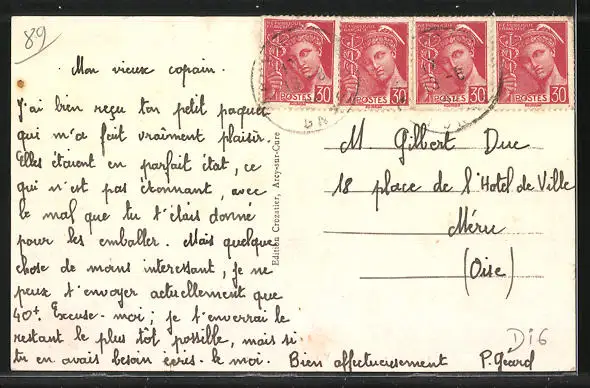 89
Mon vieux copain.
J'ai bien reçu ton petit paquet
qui m'a fait vraiment plaisir.
Elles étaient en parfait état, ce
qui n'est pas étonnant, avec
le mal que tu t'étais donné
pour les emballer. Mais quelque
chose de moins interessant, je ne
peux t'envoyer actuellement que
40f. Excuse-moi; je t'enverrai le
restant le plus tôt possible, mais si
tu en avais besoin écris-le moi. Bien affectueusement P. Geard
Edition Crozatier, Arcy-sur-Cure
POSTES 30
POSTES 30
POSTES 30
POSTES 30
M Gilbert Duc
18 place de l'Hotel de Ville
Méru
(Oise)
D16